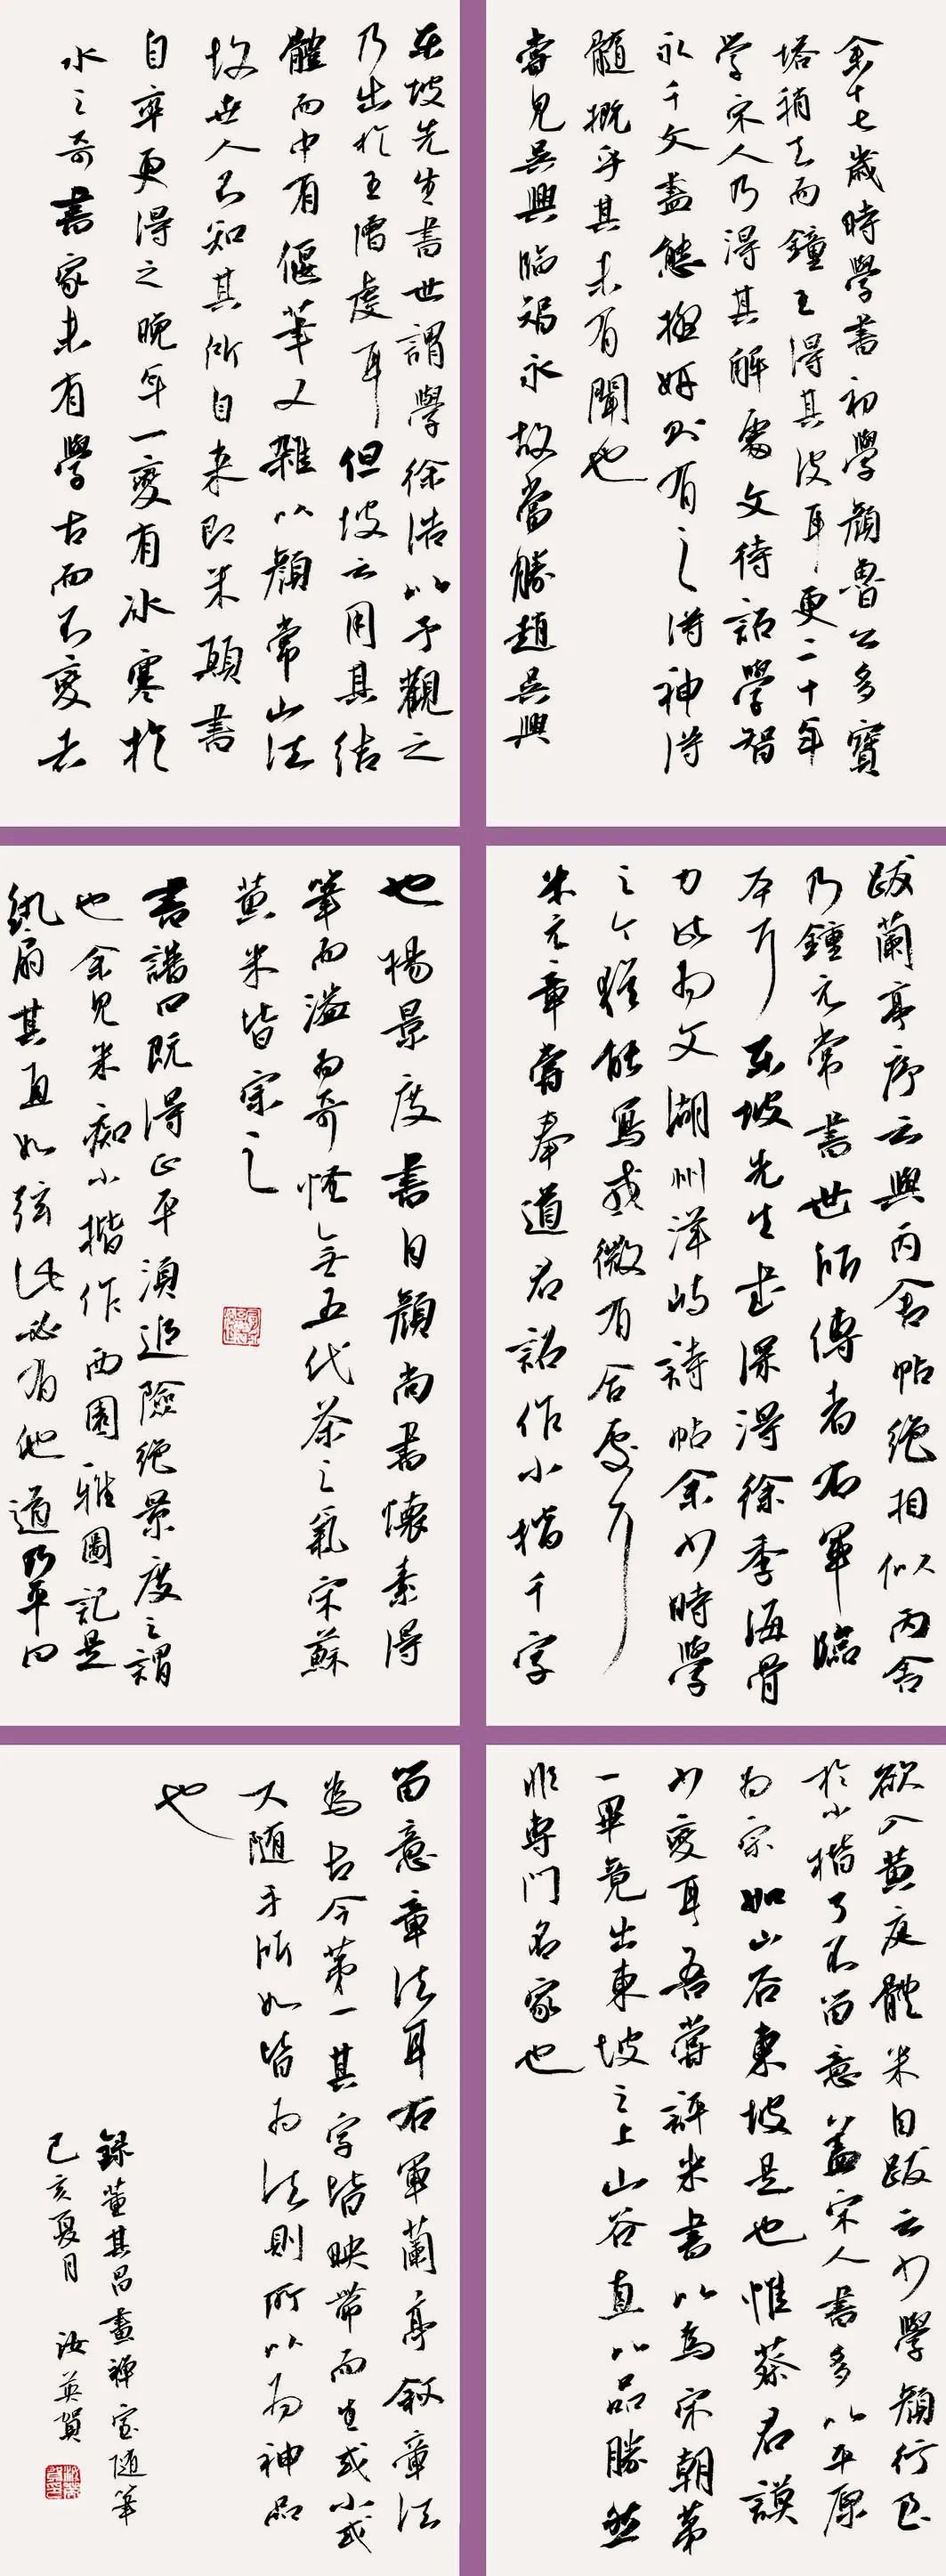 余十七歲時學書初學顏魯公多寶
塔稍去而鐘王得其皮耳更二十年
学宋人乃得其解處文待詔學智
永千文盡態極妍則有之得神得
髓概乎其未有聞也
嘗見吳興臨禊永故當勝趙吳興
跋蘭亭序云與丙舍帖絕相似丙舍
乃鍾元常書世所傳者右軍臨
本耳東坡先生書深得徐季海骨
力此為文湖州洋嶼詩帖余少時學
之今猶能寫或微有合處耳
米元章嘗奉道君詔作小楷千字
欲入黄庭體米自跋云少學顏行至
於小楷了不留意蓋宋人書多以平原
為宗如山谷東坡是也惟蔡君謨
少變耳吾嘗評米書以為宋朝第
一畢竟出東坡之上山谷直以品勝然
非專門名家也
東坡先生書世謂學徐浩以予觀之
乃出於王僧虔耳但坡云用其结
體而中有偃筆又雜以顏常山法
故世人不知其所自来即米顛書
自率更得之晚年一變有冰寒於
水之奇書家未有學古而不變者
也楊景度書自顏尚書懷素得
筆而溢為奇怪無五代茶之氣宋蘇
黄米皆宗之
書譜曰既得正平須追險絕景度之謂
也余見米痴小楷作西園雅圖記是
紈扇其直如弦此必有他道乃平日
留意章法耳右軍蘭亭叙章法
為古今第一其字皆映帶而生或小或
大随手所如皆為法則所以為神品
也
録董其昌畫禪室随筆
己亥夏月 汝英賀